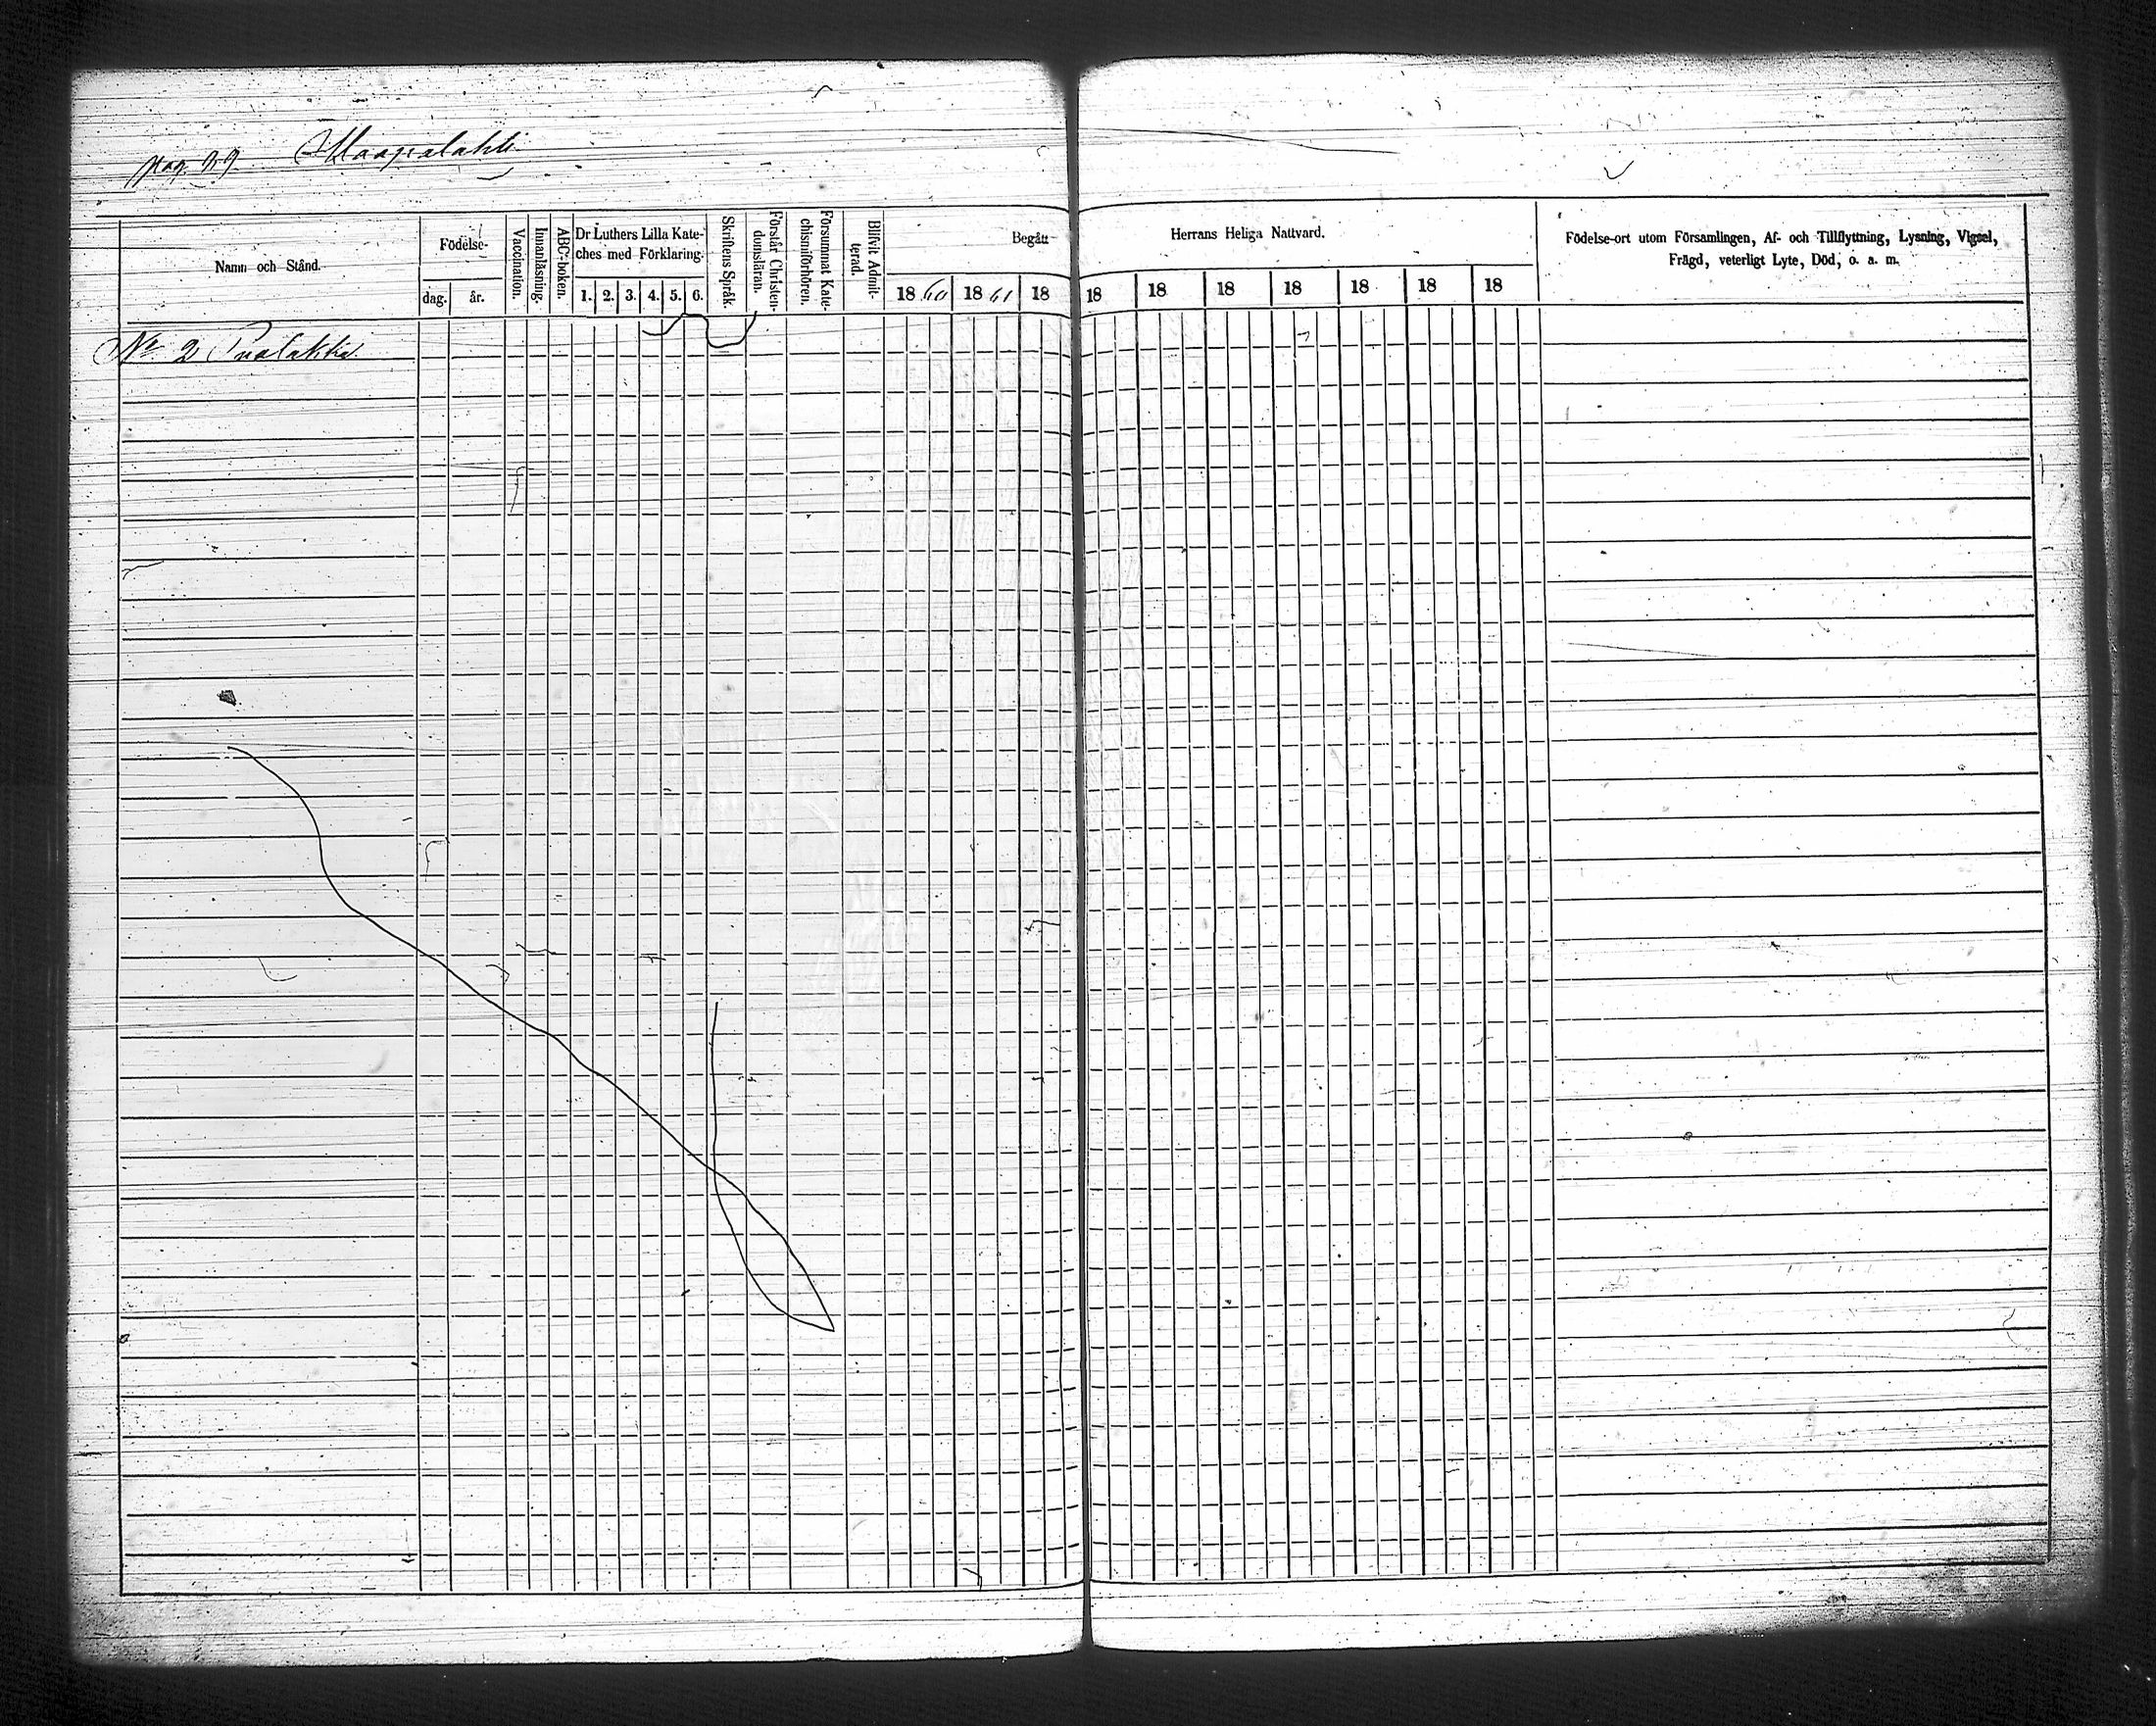 pag. 29 Haapalahti
Namn och Stånd.
Födelse-
dag.
år.
Vaccination.
Innanläsning.
ABC-boken.
Dr Luthers Lilla Kate-
ches med Förklaring.
1. 2. 3. 4. 5. 6.
Skriftens Språk.
Förstår Christen-
domsläran.
Försummat Kate-
chismiförhören.
Blifvit Admit-
terad.
Begått
Herrans Heliga Nattvard.
1860 1861 18 18 18 18 18 18 18 18
Födelse-ort utom Församlingen, Af- och Tillflyttning, Lysning, Vigsel,
Frägd, veterligt Lyte, Död, o. a. m.
No 2 Puolakka